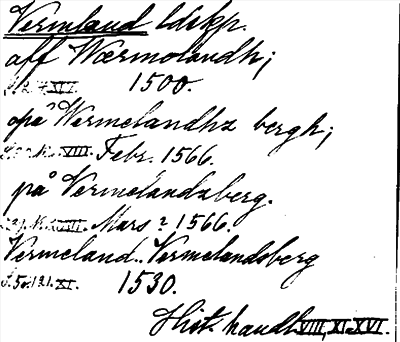 Vermland ldskp.
aff Wærmolandh;
XVI. 1500.
opå Wermelandhz bergh;
VIII. Febr. 1566.
på Vermelandzberg.
Mars ? 1566.
Vermeland.. Vermelandsberg
XI. 1530.
Hist. handl. VIII, XI. XVI.